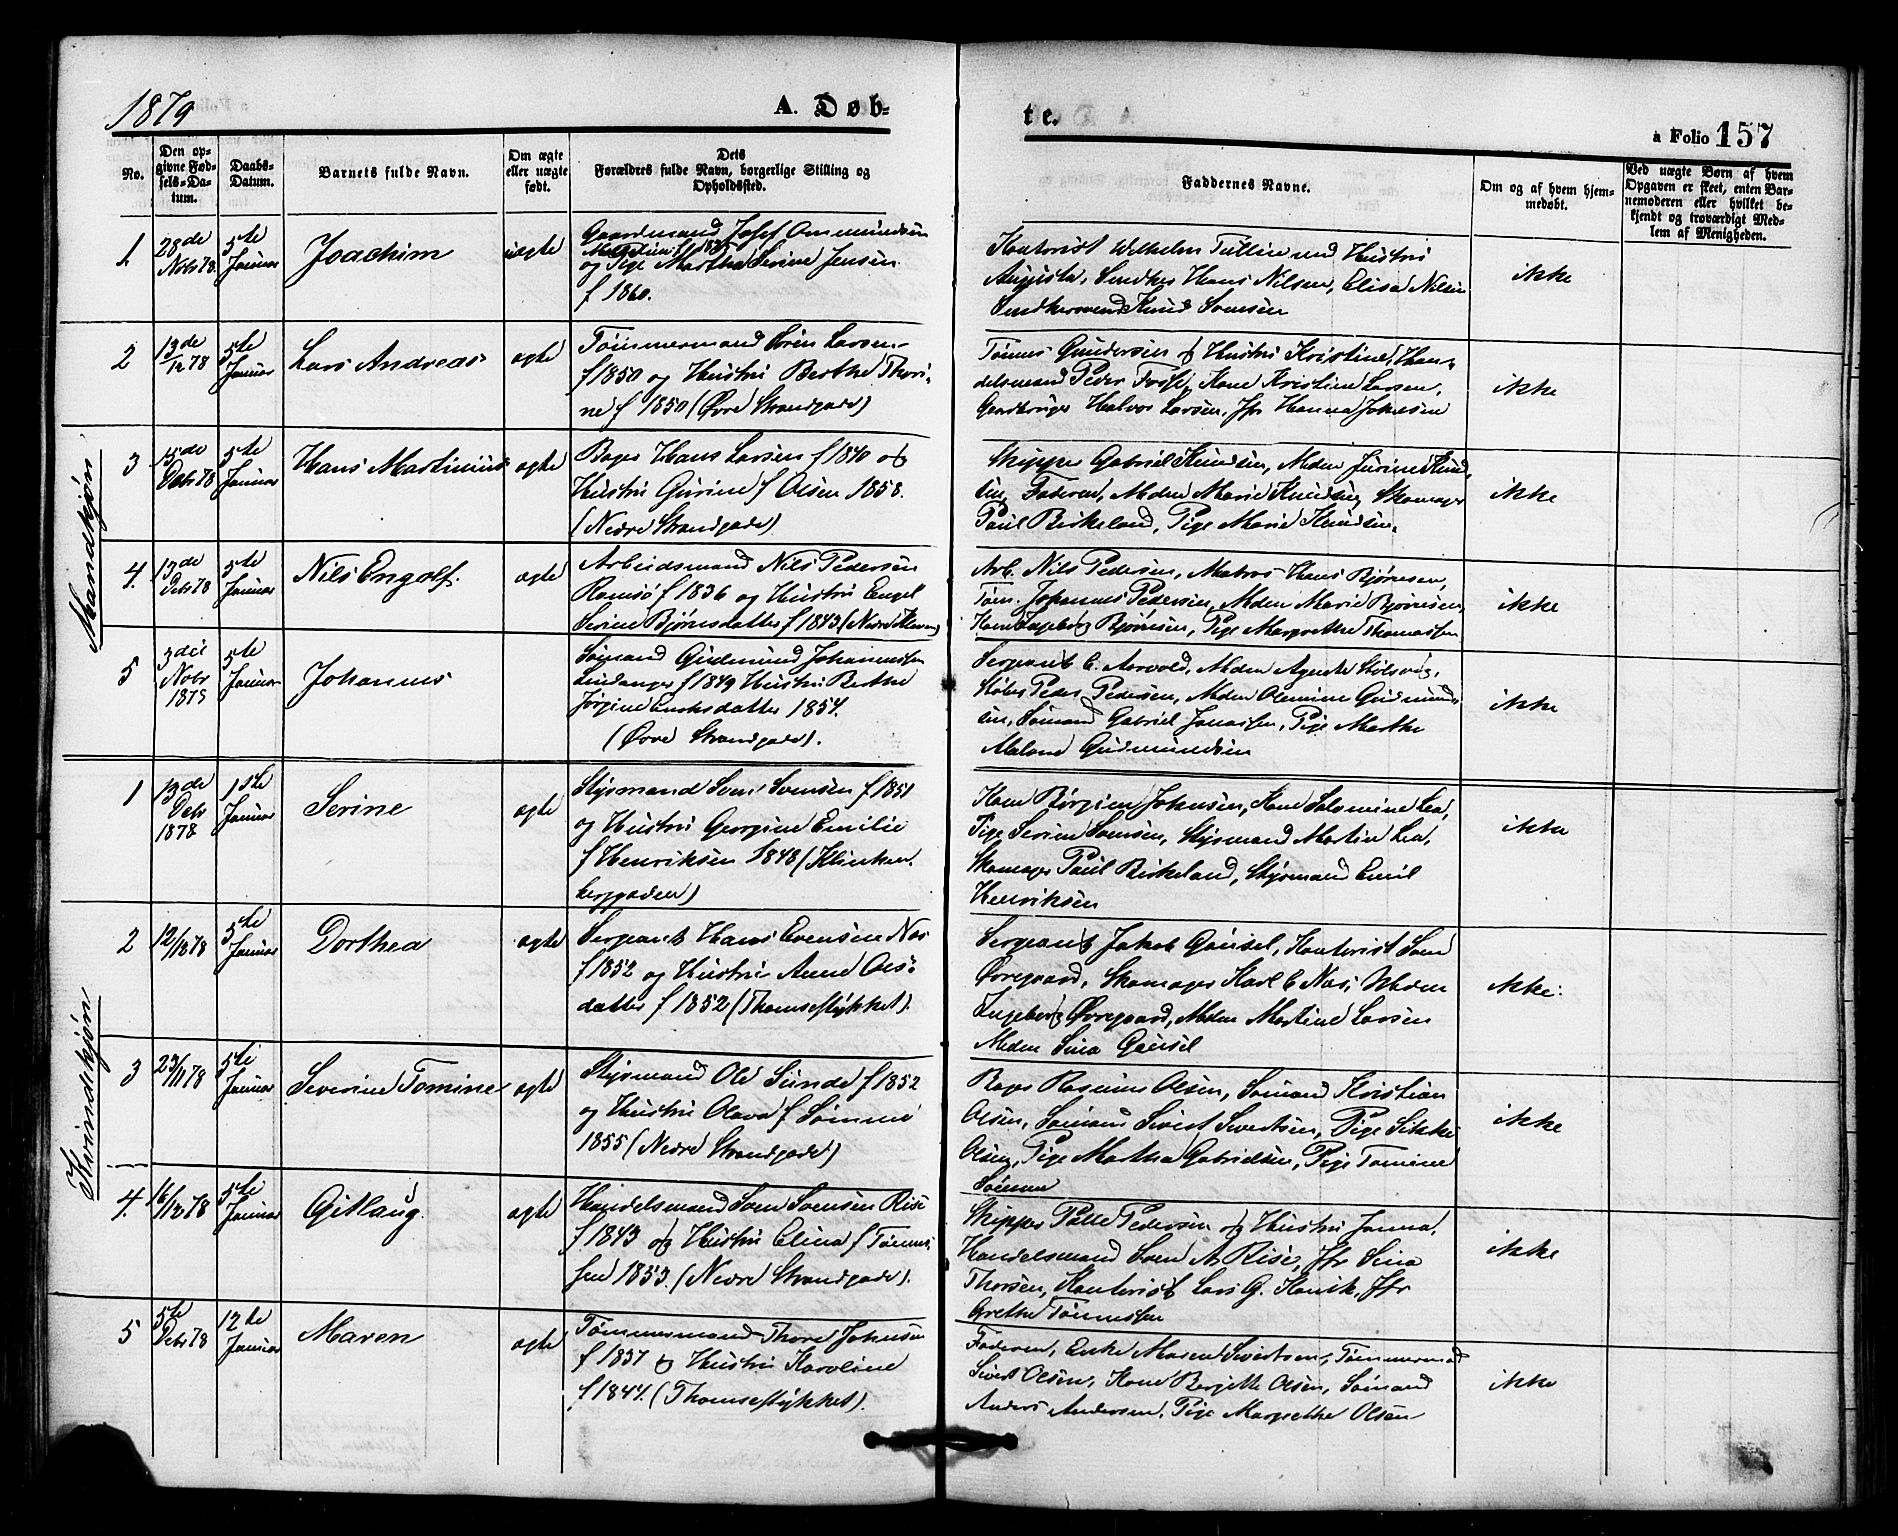 1879
A. Døb-
te.
a Folio 157
No.
Den op-
givne Fød-
sels-Da-
tum.
Daabs-
Datum.
Barnets fulde Navn.
Om ægte
eller uægte
født.
Dets
Forældres fulde Navn, borgerlige Stilling og
Opholdssted.
Faddernes Navne.
Om og af hvem hjem-
medøbt.
Ved uægte Børn af hvem
Opgaven er skeet, enten Bar-
nemoderen eller hvilket be-
kjendt og troværdigt Med-
lem af Menigheden.
Mandkjøn
1.
28de
Nobr 78.
5te
Januar
Joachim
uægte
Gaardmand Josef Ommundsen
og Pige Martha Serine Jensen
f 1860.
Kontorist Wilhelm Tullin med Hustru
Augusta, Snedker Hans Nilsen, Elisa Nilsen
Snedkersvend Knud Svensen
ikke
2
13de
/12 78
5te
Januar
Lars Andreas
ægte
Tømmermand Sören Larsen
f 1850 og Hustru Berthe Thori-
ne f 1850 (Øvre Strandgade)
Tönnes Gundersen & Hustru Kristine, Han-
delsmand Peder Fossli, Kone Kristine Larsen,
Gaardbruger Halvor Larsen, Jfr Hanna Johnsen
ikke
3
15de
Debr 78
5te
Januar
Hans Martinius
ægte
Bager Hans Larsen f 1840 og
Hustru Gurine f Olsen 1858.
(Nedre Strandgade)
Skipper Gabriel Knudsen, Mdm Jurine Knud
sen, Faderen, Mdm Marie Knudsen, Skomager
Paul Birkeland, Pige Marie Knudsen.
ikke
4.
13de
Debr 78
5te
Januar
Nils Engolf.
ægte
Arbeidsmand Nils Pedersen
Ramsö f 1836 og Hustru Engel
Serine Bjørnsdatter f 1843. (Nedre Kleven)
Arb. Nils Pedersen, Matros Hans Bjørnsen,
Tøm. Johannes Pedersen, Mdm Marie Bjørnsen,
Kone Ingeborg Bjørnsen, Pige Margrethe Thomassen
ikke
5
3die
Nobr
1878
5te
Januar
Johannes
Sømand Gudmund Johannessen
Lindanger f 1849 Hustru Berthe
Jørgine Enoksdatter 1854.
(Øvre Strandgade).
Sergeant C. Aarvold, Mdm Agnete Stølsvig,
Støber Peder Pedersen, Mdm Olemine Gudmund
sen, Sømand Gabriel Jonassen, Pige Marthe
Malene Gudmundsen
ikke
Kvindekjøn
1
13de
Debr
1878
1ste
Januar
Serine
ægte
Styrmand Sven Svensen f 1851
og Hustru Georgine Emilie
f Henriksen 1848 (Klinken-
berggaden)
Kone Børgine Johnsen, Kone Salomine Lea,
Pige Serine Svensen, Styrmand Martin Lea,
Skomager Paul Birkeland, Styrmand Emil
Henriksen
ikke
2
12/12 78
5te
Januar
Dorthea
ægte
Sergeant Hans Evensen Næs
f 1852 og Hustru Anne Ols-
datter f 1852 (Thomsestykket).
Sergeant Jakob Gausel, Kontorist Sven
Øvregaard, Skomager Karl C Næs, Mdm
Ingeborg Øvregaard, Mdm Martine Larsen
Mdm Sina Gausel
ikke.
3
23/11 78
5te
Januar
Severine Tomine
ægte
Styrmand Ole Sunde f 1852
og Hustru Olava f Sømme
1855 (Nedre Strandgade)
Bager Rasmus Olsen, Sømand Kristian
Olsen, Sømand Sivert Sivertsen, Pige Sikke
Olsen, Pige Martha Gabrielsen, Pige Tomine
Sømme
ikke
4.
16/12 78
5te
Januar
Gitlaug
ægte
Handelsmand Sven Svensen Rise
f 1843 og Hustru Elina f Tønnes-
sen 1853. (Nedre Strandgade).
Skipper Palle Pedersen og Hustru Janna,
Handelsmand Sven A. Rise, Jfr Sina
Thorsen, Kontorist Lars G. Hauik, Jfr
Grethe Tønnessen
ikke
5
5te
Debr 78
12te
Januar
Maren
ægte
Tømmermand Thore Johnsen
f 1837 og Hustru Karoline
f 1844. (Thomsestykket).
Faderen, Enke Maren Sivertsen, Tømmermand
Sivert Olsen, Kone Bergitte Olsen, Sømand
Anders Andersen, Pige Margrethe Olsen
ikke